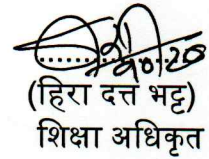 (हिरा दत्त भट्ट)
शिक्षा अधिकृत